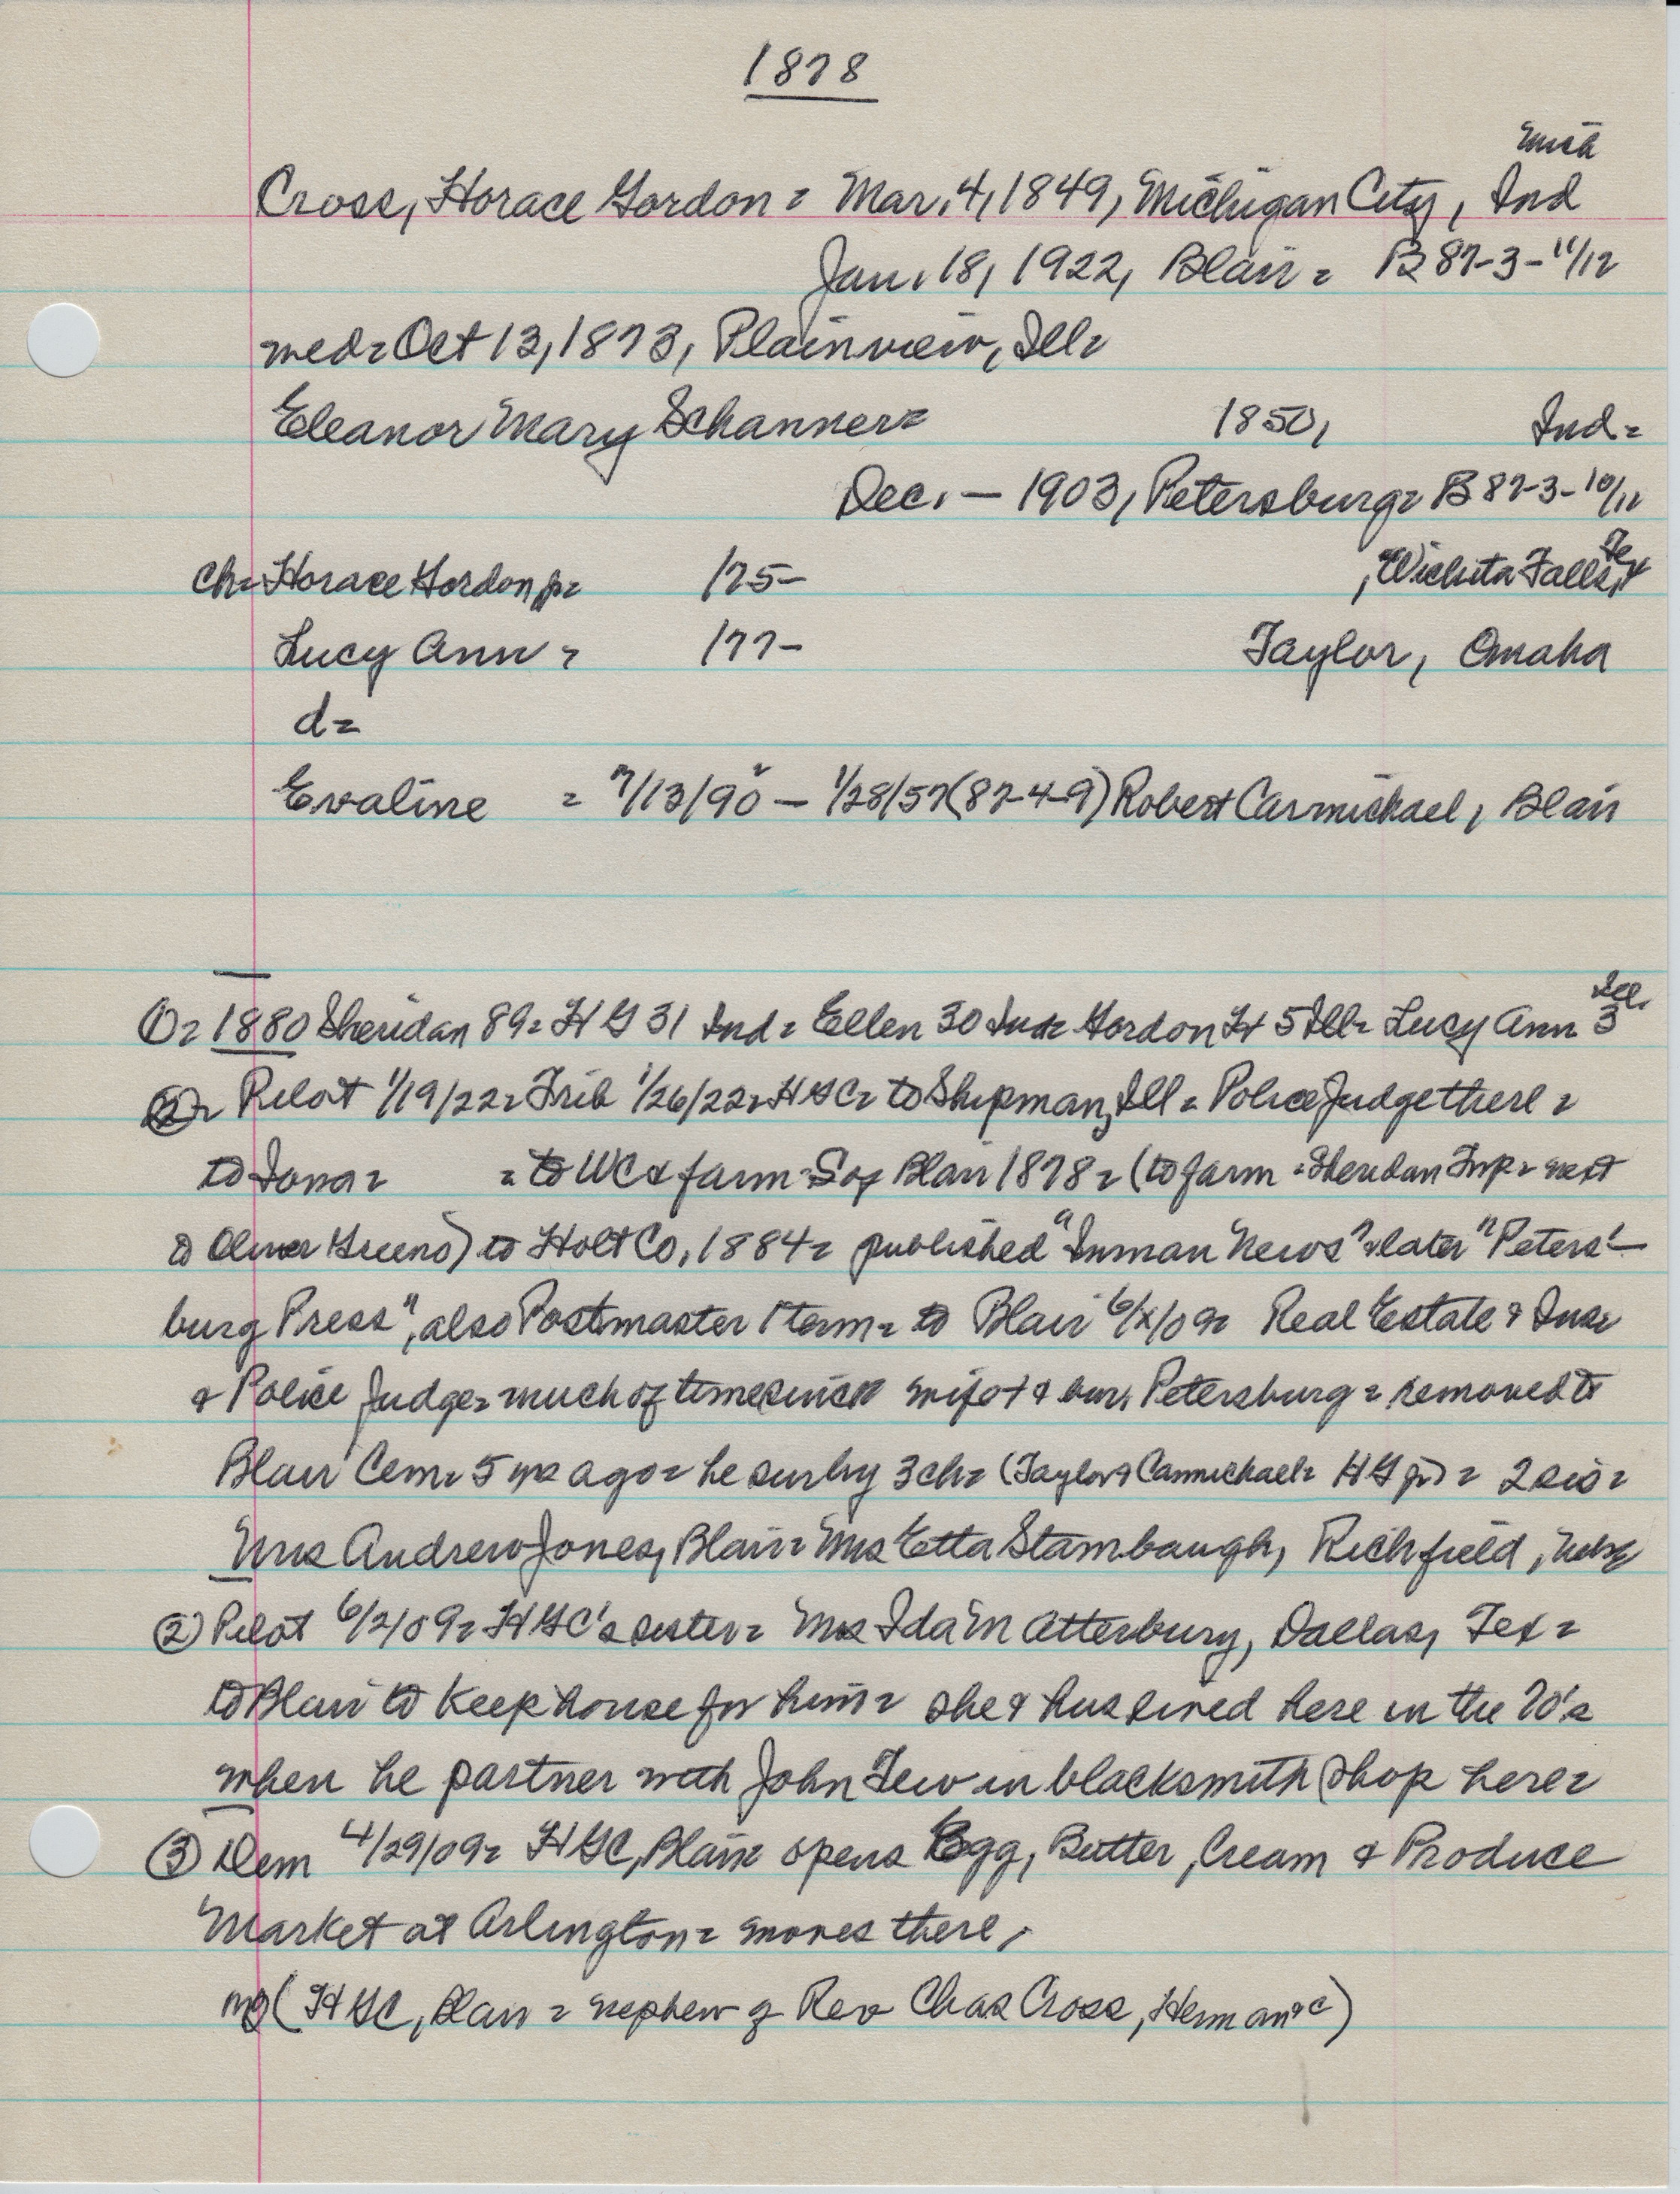 1878
Mich
Cross, Horace Gordon = Mar. 4, 1849, Michigan City, Ind
Jan. 18, 1922, Blair = B 87-3-11/12
med = Oct 13, 1873, Plainview, Ill =
Eleanor Mary Schanner = 1850, Ind =
Dec. — 1903, Petersburg = B 87-3-10/11
ch = Horace Gordon jr = /75- , Wichita Falls, Tex
Lucy Ann = /77- Taylor, Omaha
d =
Evaline = 7/13/90 — 1/28/57 (87-4-9) Robert Carmichael, Blair
① = 1880 Sheridan 89 = H G 31 Ind = Ellen 30 Ind = Gordon H 5 Ill = Lucy Ann 3 Ill.
= Pilot 1/19/22 = Trib 1/26/22 = HGC = to Shipman, Ill = Police Judge there =
to Iowa = = to WC & farm = S of Blair 1878 = (to farm = Sheridan Twp = next
to Oliver Greeno) to Holt Co, 1884 = published "Inman News" & later "Peters-
burg Press", also Postmaster 1 term = to Blair 6/x/09 = Real Estate & Ins =
& Police Judge = much of time since wife + & bur. Petersburg = removed to
Blair Cem = 5 yrs ago = he sur by 3 ch = (Taylor & Carmichael = HG jr) = 2 sis =
Mrs Andrew Jones, Blair = Mrs Etta Stambaugh, Richfield, Nebr
② Pilot 6/2/09 = HGC's sister = Mrs Ida M Atterbury, Dallas, Tex =
to Blair to keep house for him = she & hus lived here in the 70's
when he partner with John Tew in blacksmith shop here =
③ Dem 4/29/09 = HGC, Blair = opens Egg, Butter, Cream & Produce
Market at Arlington = moves there,
(HGC, Blair = nephew of Rev Chas Cross, Herman)